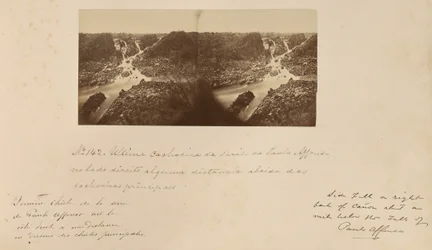 Nº 142. Ultima Cachoeira da serie de Paulo Affonso
no lado direito alguma distancia abaixo das
cachoeiras principaes
Dernière chute de la serie
de Paulo Affonso sur le
côté droit à une distance
des chutes principales.
Side Fall on right
bank of Cañon about a
mile below the Falls of
Paulo Affonso